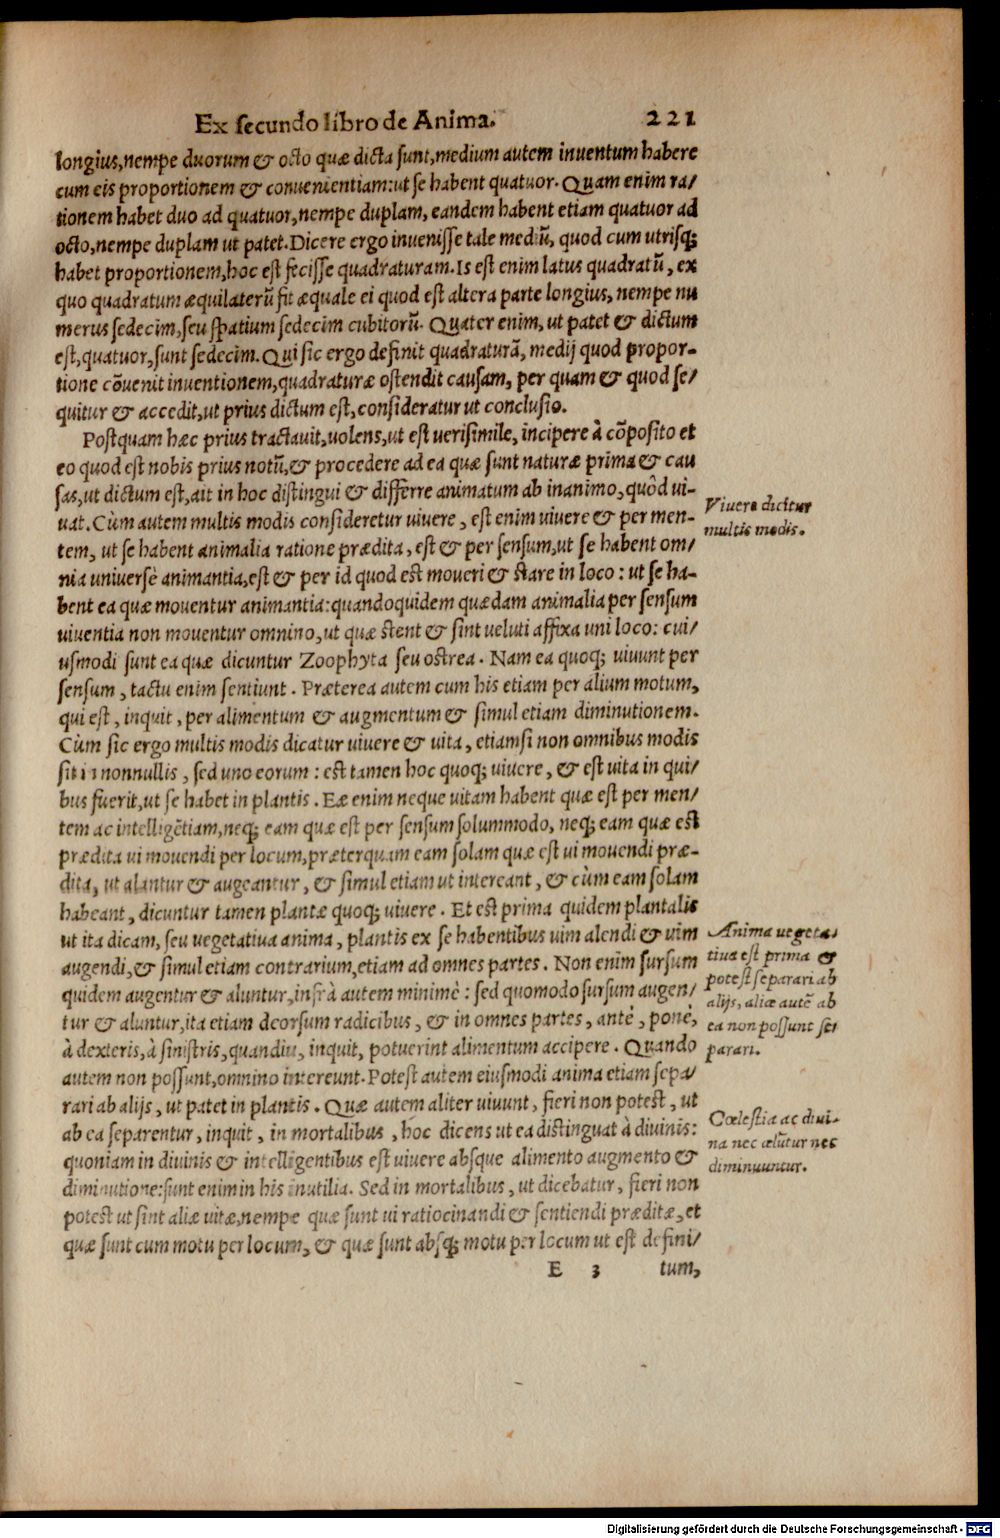 Ex secundo libro de Anima. 221
longius, nempe duorum & octo quæ dicta sunt, medium autem inuentum habere
cum eis proportionem & conuenientiam: ut se habent quatuor. Quam enim ra/
tionem habet duo ad quatuor, nempe duplam, eandem habent etiam quatuor ad
octo, nempe duplam ut patet. Dicere ergo inuenisse tale mediũ, quod cum utrisq;
habet proportionem, hoc est fecisse quadraturam. Is est enim latus quadratũ, ex
quo quadratum æquilaterũ fit æquale ei quod est altera parte longius, nempe nu
merus sedecim, seu spatium sedecim cubitorũ. Quater enim, ut patet & dictum
est, quatuor, sunt sedecim. Qui sic ergo definit quadraturã, medij quod propor-
tione cõuenit inuentionem, quadraturæ ostendit causam, per quam & quod se/
quitur & accedit, ut prius dictum est, consideratur ut conclusio.
Postquam hæc prius tractauit, uolens, ut est uerisimile, incipere à cõposito et
eo quod est nobis prius notũ, & procedere ad ea quæ sunt naturæ prima & cau
sas, ut dictum est, ait in hoc distingui & differre animatum ab inanimo, quôd ui-
uat. Cùm autem multis modis consideretur uiuere, est enim uiuere & per men-
tem, ut se habent animalia ratione prædita, est & per sensum, ut se habent om/
nia uniuersè animantia, est & per id quod est moueri & stare in loco: ut se ha-
bent ea quæ mouentur animantia: quandoquidem quædam animalia per sensum
uiuentia non mouentur omnino, ut quæ stent & sint ueluti affixa uni loco: cui/
usmodi sunt ea quæ dicuntur Zoophyta seu ostrea. Nam ea quoq; uiuunt per
sensum, tactu enim sentiunt. Præterea autem cum his etiam per alium motum,
qui est, inquit, per alimentum & augmentum & simul etiam diminutionem.
Cùm sic ergo multis modis dicatur uiuere & uita, etiamsi non omnibus modis
sit in nonnullis, sed uno eorum: est tamen hoc quoq; uiuere, & est uita in qui/
bus fuerit, ut se habet in plantis. Eæ enim neque uitam habent quæ est per men/
tem ac intelligẽtiam, neq; eam quæ est per sensum solummodo, neq; eam quæ est
prædita ui mouendi per locum, præterquam eam solam quæ est ui mouendi præ-
dita, ut alantur & augeantur, & simul etiam ut intereant, & cùm eam solam
habeant, dicuntur tamen plantæ quoq; uiuere. Et est prima quidem plantalis
ut ita dicam, seu uegetatiua anima, plantis ex se habentibus uim alendi & uim
augendi, & simul etiam contrarium, etiam ad omnes partes. Non enim sursum
quidem augentur & aluntur, infrà autem minimè: sed quomodo sursum augen/
tur & aluntur, ita etiam deorsum radicibus, & in omnes partes, antè, ponè,
à dexteris, à sinistris, quandiu, inquit, potuerint alimentum accipere. Quando
autem non possunt, omnino intereunt. Potest autem eiusmodi anima etiam sepa/
rari ab alijs, ut patet in plantis. Quæ autem aliter uiuunt, fieri non potest, ut
ab ea separentur, inquit, in mortalibus, hoc dicens ut ea distinguat à diuinis:
quoniam in diuinis & intelligentibus est uiuere absque alimento augmento &
diminutione: sunt enim in his inutilia. Sed in mortalibus, ut dicebatur, fieri non
potest ut sint aliæ uitæ, nempe quæ sunt ui ratiocinandi & sentiendi præditæ, et
quæ sunt cum motu per locum, & quæ sunt absq; motu per locum ut est defini/
E 3 tum,
Viuere dicitur
multis modis.
Anima uegeta/
tiua est prima &
potest separari ab
alijs, aliæ autẽ ab
ea non possunt se/
parari.
Cœlestia ac diui-
na nec alũtur nec
diminuuntur.
Digitalisierung gefördert durch die Deutsche Forschungsgemeinschaft - DFG